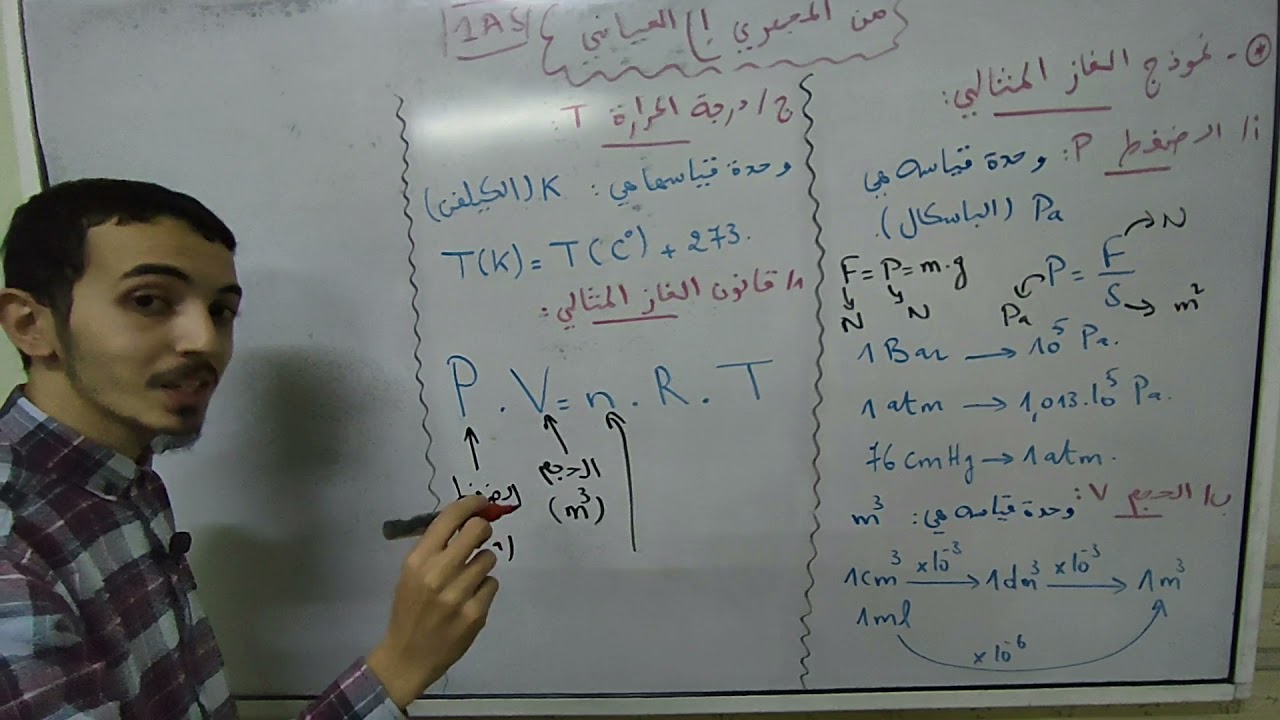 من المجهري إلى العياني 1AS
* - نموذج الغاز المثالي:
أ/ الضغط P: وحدة قياسه هي
Pa (الباسكال).
F = P = m.g
N N
P = F/S
Pa N m²
1 Bar → 10⁵ Pa.
1 atm → 1,013.10⁵ Pa.
76 cmHg → 1 atm.
ب/ الحجم V: وحدة قياسه هي: m³
1cm³ ×10⁻³ → 1dm³ ×10⁻³ → 1m³
1ml
×10⁻⁶
ج/ درجة الحرارة T:
وحدة قياسها هي: K (الكيلفن)
T(K) = T(C°) + 273.
1/ قانون الغاز المثالي:
P . V = n . R . T
الضغط الحجم
(m³)